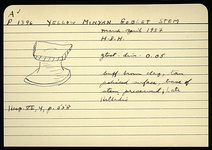 A
P 1396 YELLOW MINYAN GOBLET STEM
March-April 1937
H.S.H.
gtest. dim. 0.05
buff brown clay, tan
polished surface, base of
stem preserved, late
Helladic
Hesp. VI, 4, p. 558